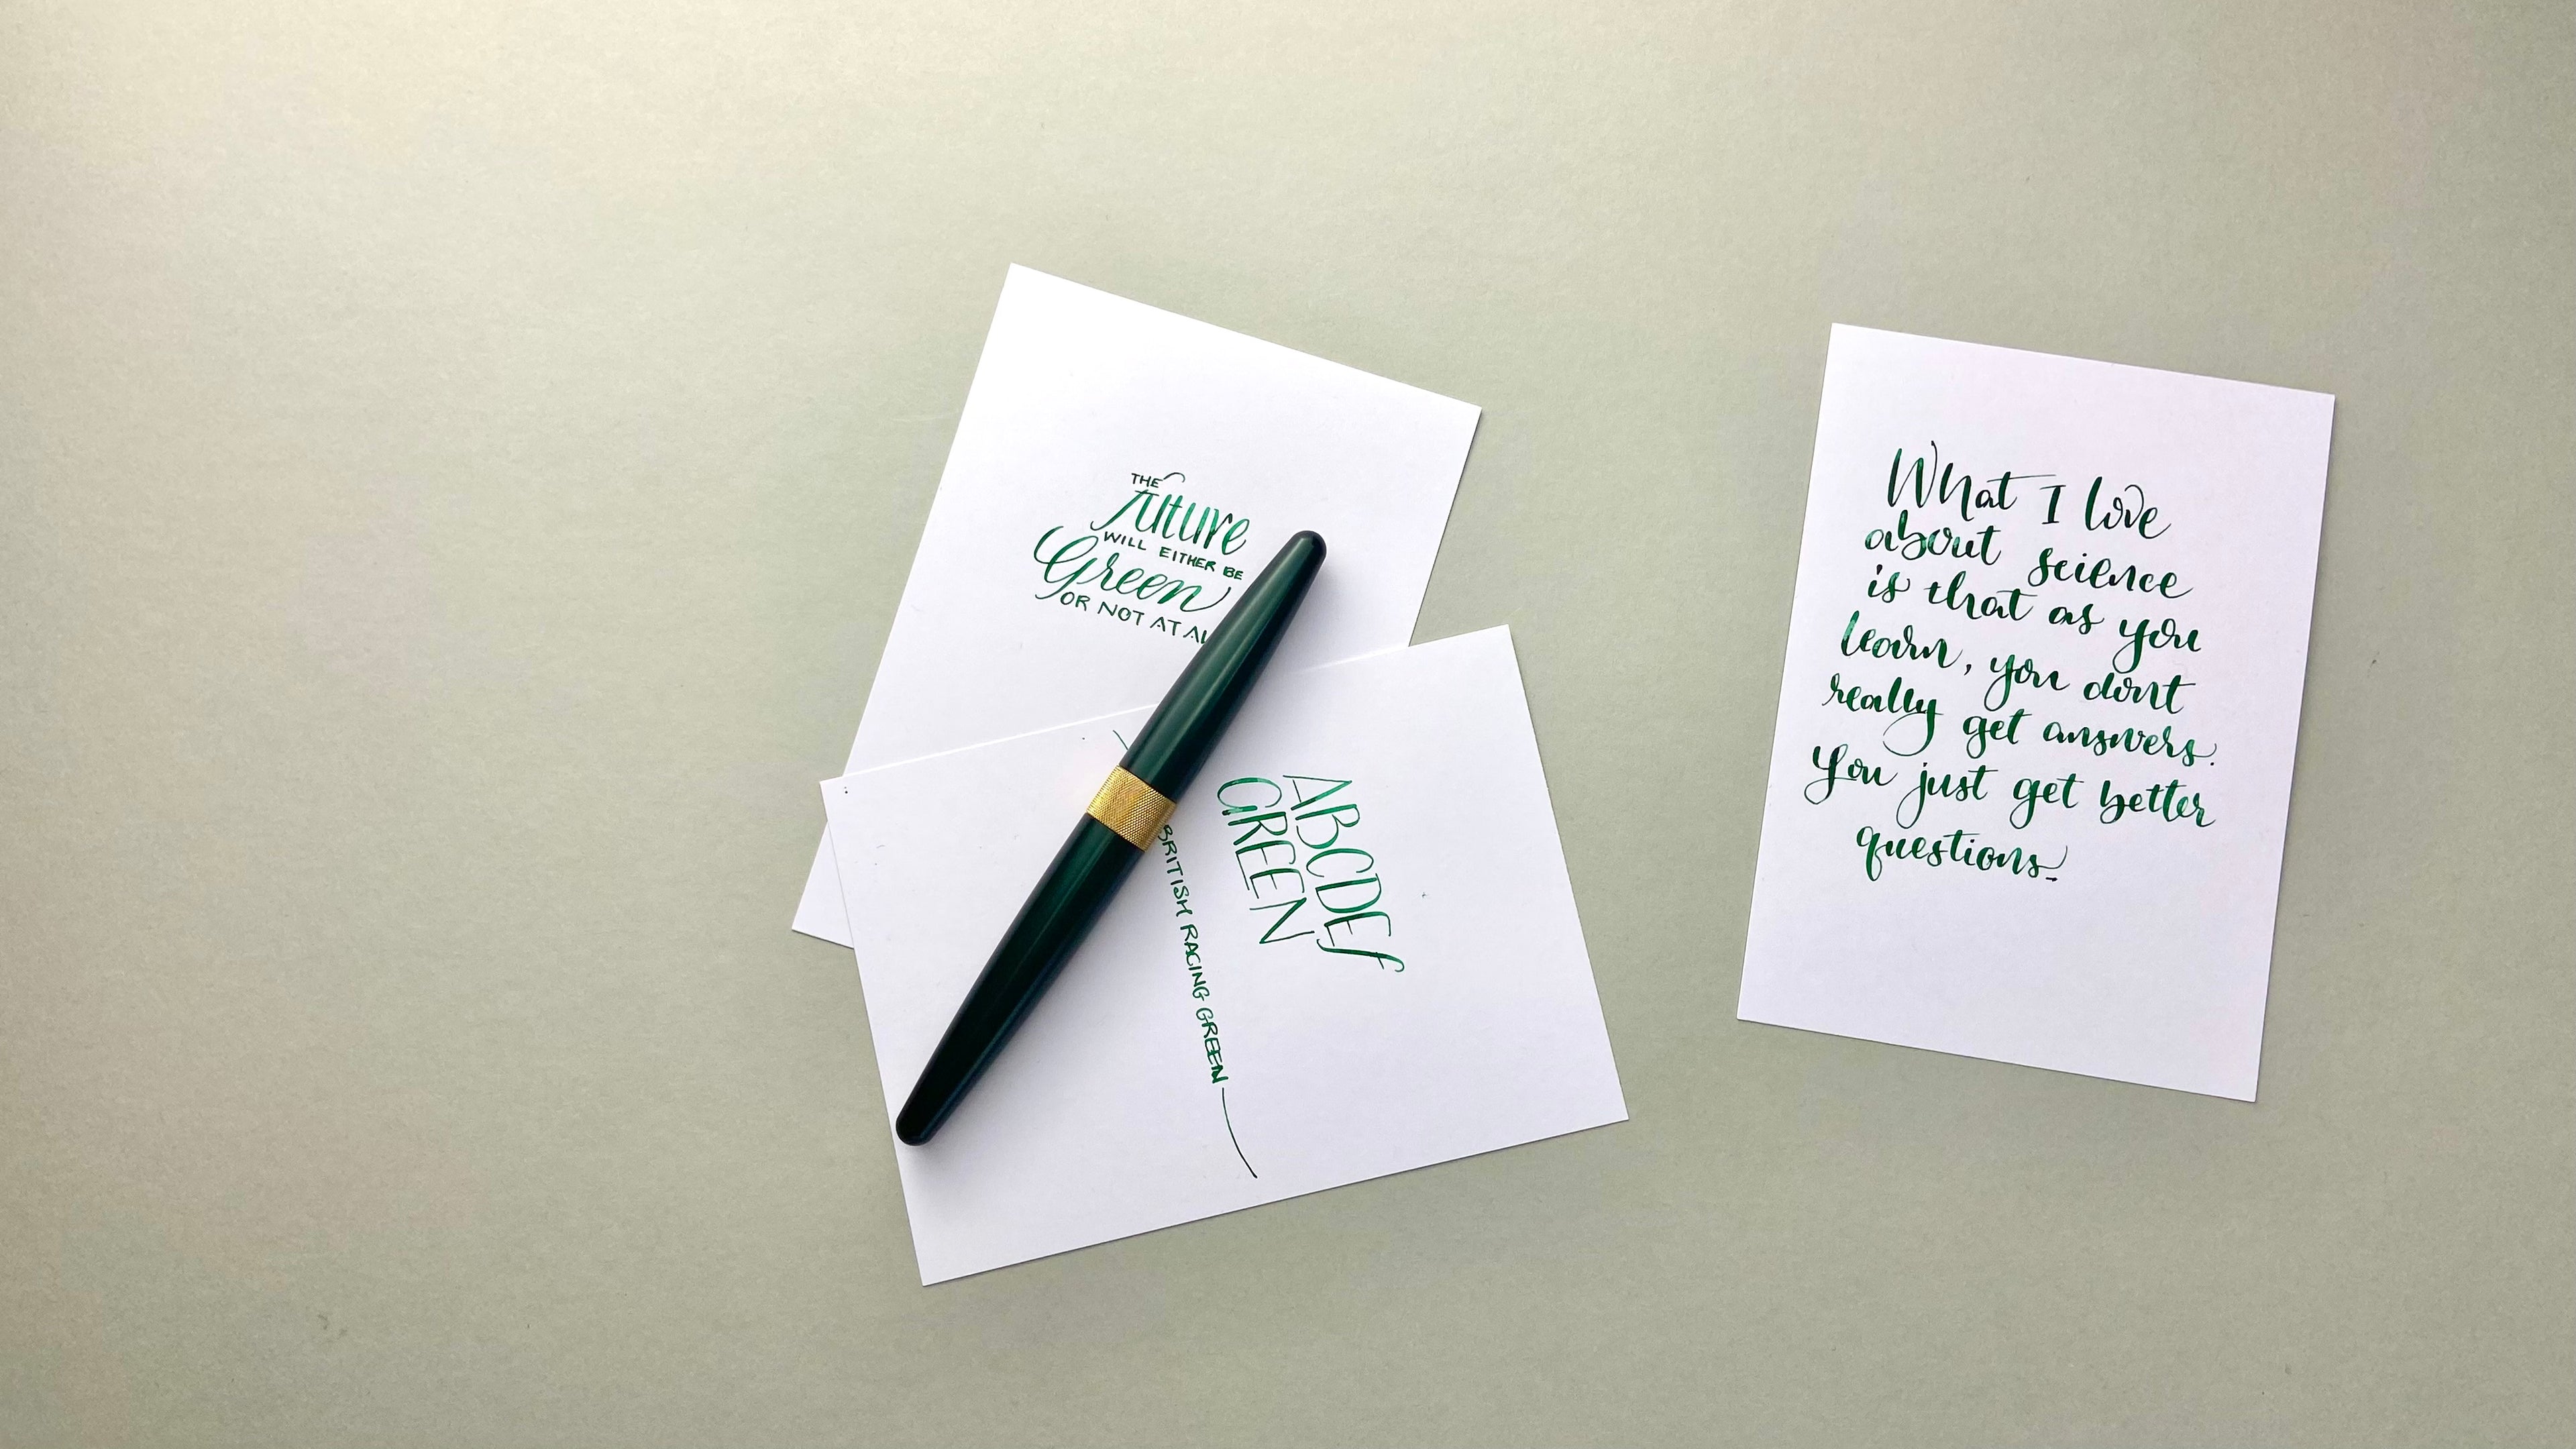 THE
future
WILL EITHER BE
Green
OR NOT AT
ABCDEf
GREEN
BRITISH RACING GREEN
What I love
about science
is that as you
learn, you dont
really get answers.
You just get better
questions.